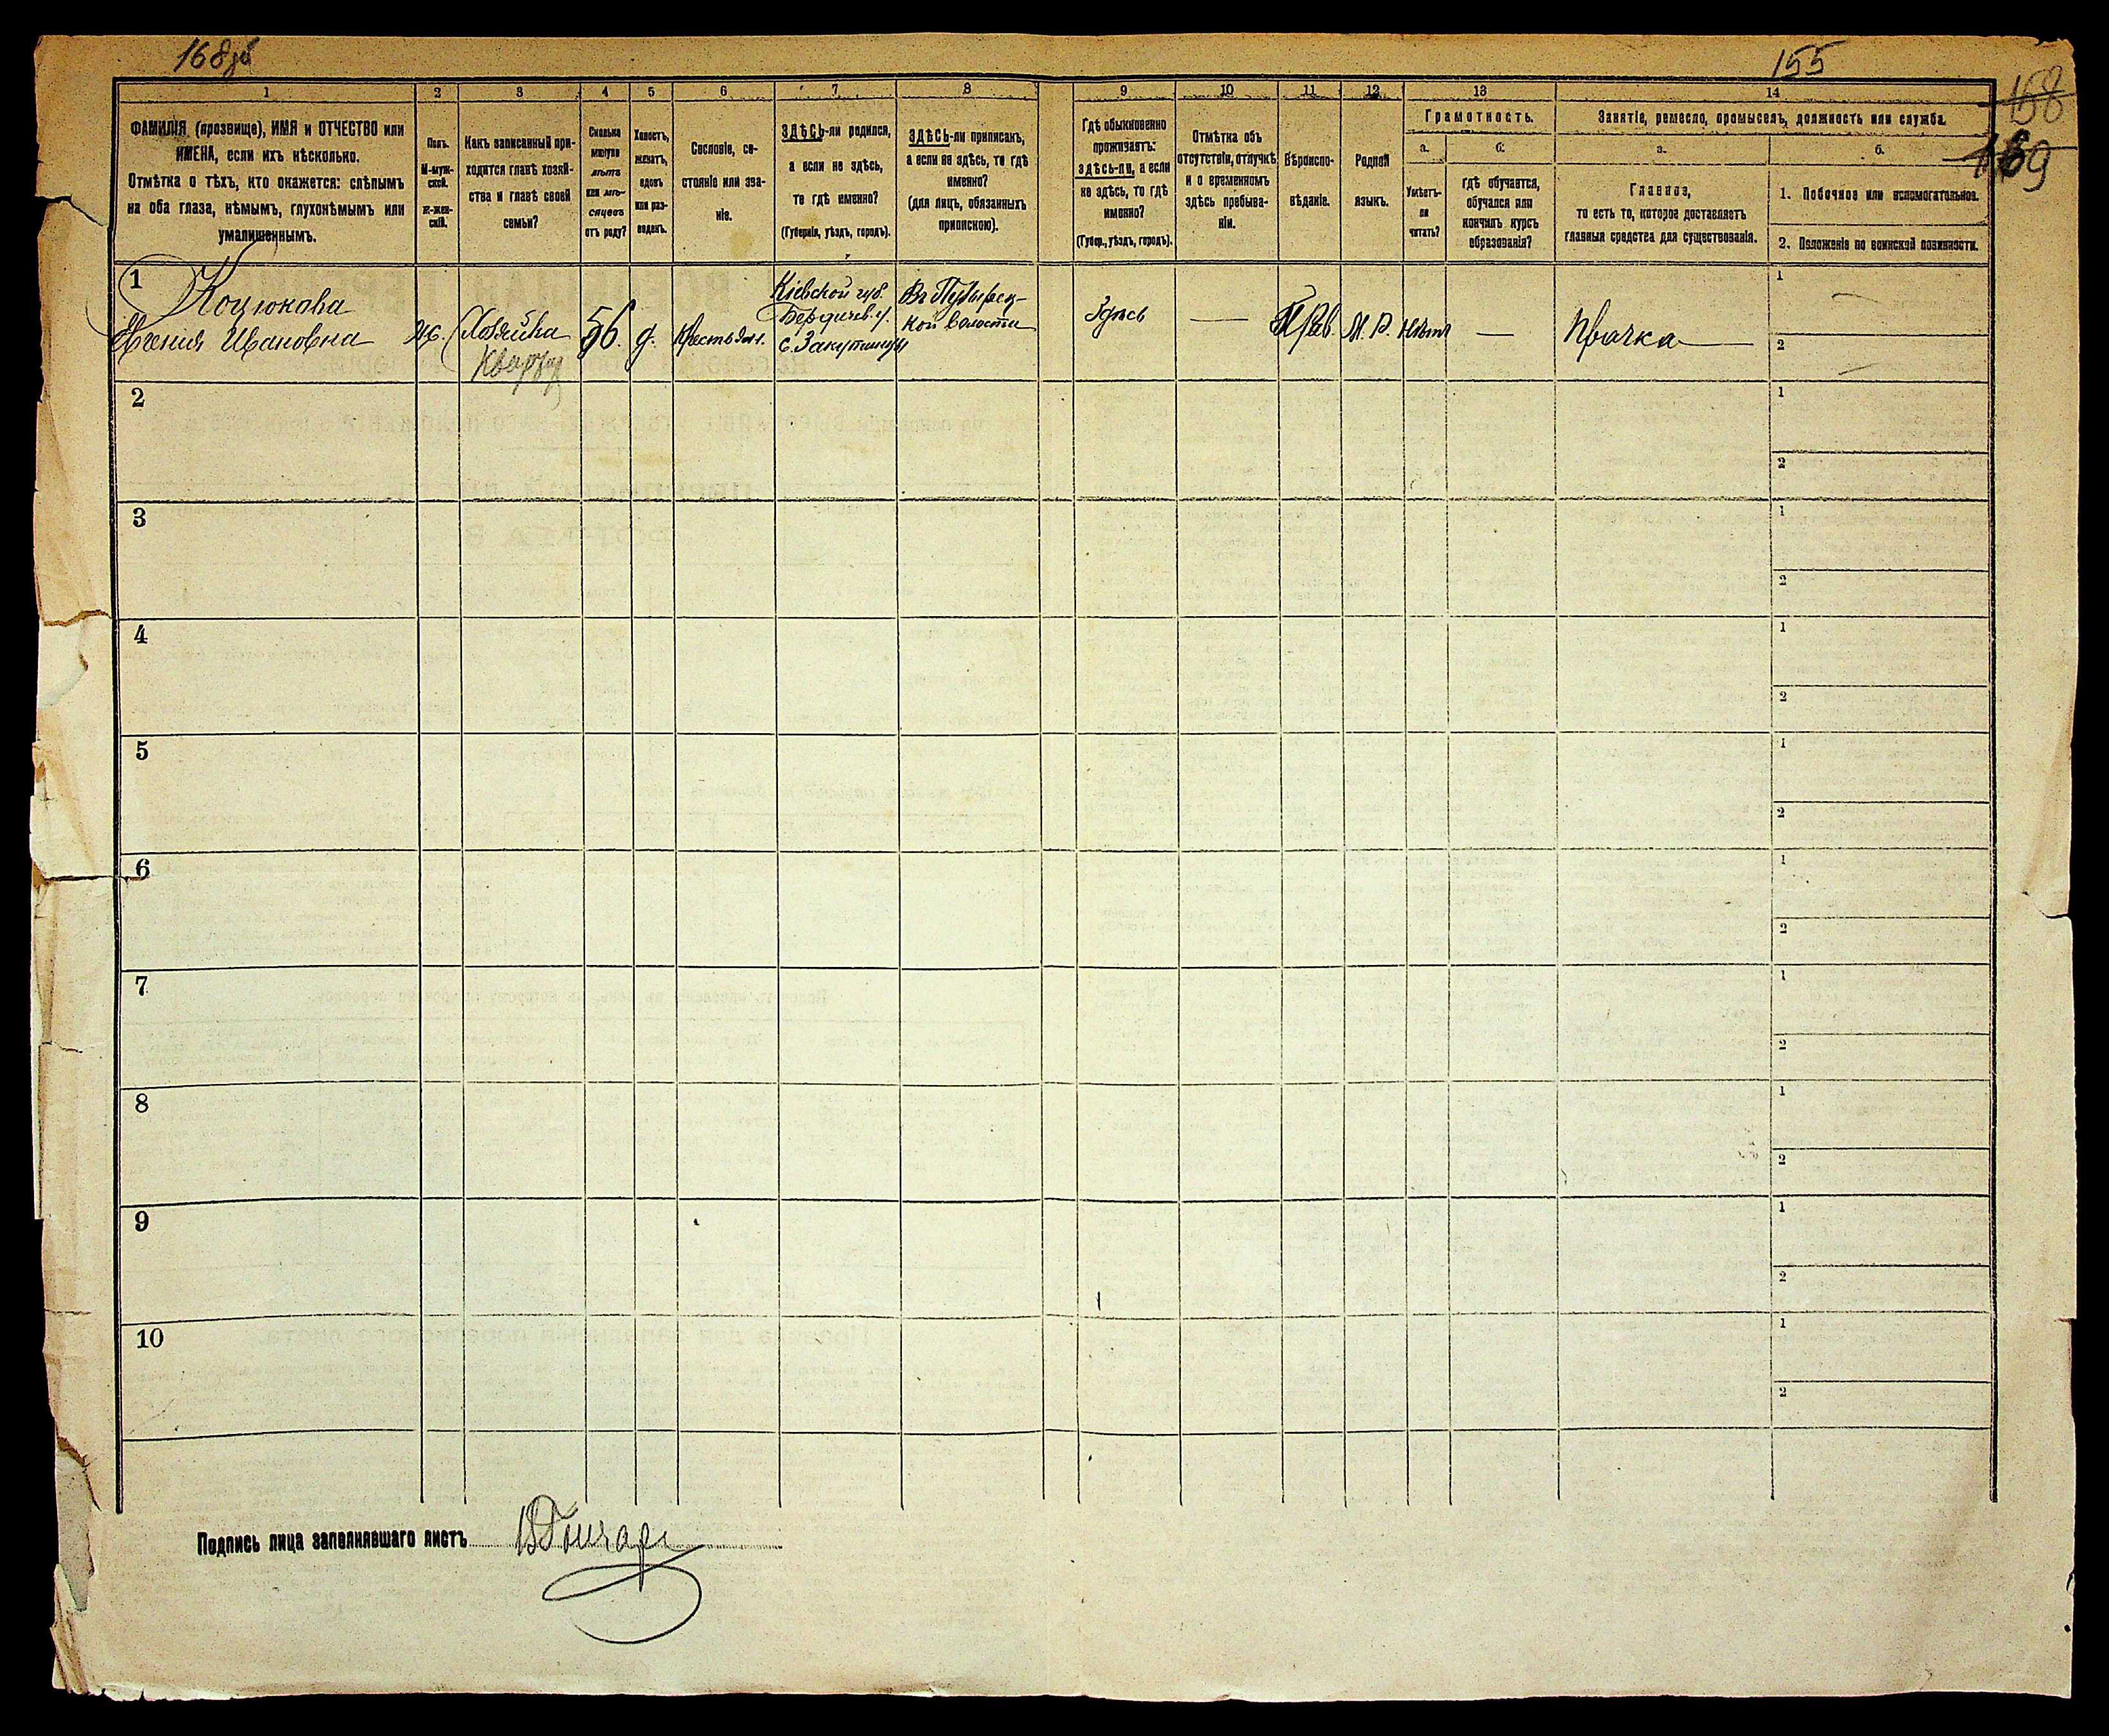 168об
155
168
169
1
2
3
4
5
6
7
8
9
10
11
12
13
14
ФАМИЛІЯ (прозвище), ИМЯ и ОТЧЕСТВО или
ИМЕНА, если ихъ нѣсколько.
Отмѣтка о тѣхъ, кто окажется: слѣпымъ
на оба глаза, нѣмымъ, глухонѣмымъ или
умалишеннымъ.
Полъ.
М-муж-
ской.
Ж-жен-
скій.
Какъ записанный при-
ходится главѣ хозяй-
ства и главѣ своей
семьи?
Сколько
минуло
лѣтъ
или мѣ-
сяцевъ
отъ роду?
Холостъ,
женатъ,
вдовъ
или раз-
веденъ.
Сословіе, со-
стояніе или зва-
ніе.
ЗДѢСЬ-ли родился,
а если не здѣсь,
то гдѣ именно?
(Губернія, уѣздъ, городъ).
ЗДѢСЬ-ли приписанъ,
а если не здѣсь, то гдѣ
именно?
(для лицъ, обязанныхъ
припискою).
Гдѣ обыкновенно
проживаетъ:
здѣсь-ли, а если
не здѣсь, то гдѣ
именно?
(Губер., уѣздъ, городъ).
Отмѣтка объ
отсутствіи, отлучкѣ
и о временномъ
здѣсь пребыва-
ніи.
Вѣроиспо-
вѣданіе.
Родной
языкъ.
Грамотность.
а.
б.
Умѣетъ-
ли
читать?
гдѣ обучается,
обучался или
кончилъ курсъ
образованія?
Занятіе, ремесло, промыселъ, должность или служба.
а.
б.
Главное,
то есть то, которое доставляетъ
главныя средства для существованія.
1. Побочное или вспомогательное.
2. Положеніе по воинской повинности.
1
Коцюкова
Ксенія Ивановна
Ж.
Хозяйка
56.
д.
Крестьян.
Кіевской губ.
Бердичев. у.
с. Закутинцы
кой волости
Здѣсь
—
Прав.
М. Р.
Нѣтъ
—
Прачка
1
2
2
1
2
3
1
2
4
1
2
5
1
2
6
1
2
7
1
2
8
1
2
9
1
2
10
1
2
Подпись лица заполнявшаго листъ